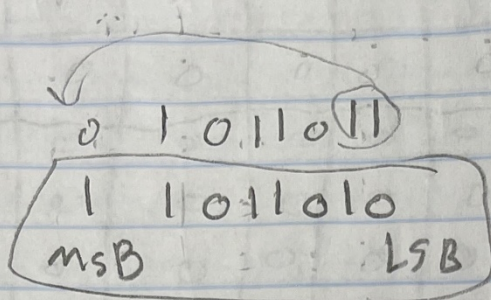 0 1 0 1 1 0 1 1
1 1 0 1 1 0 1 0
MSB LSB